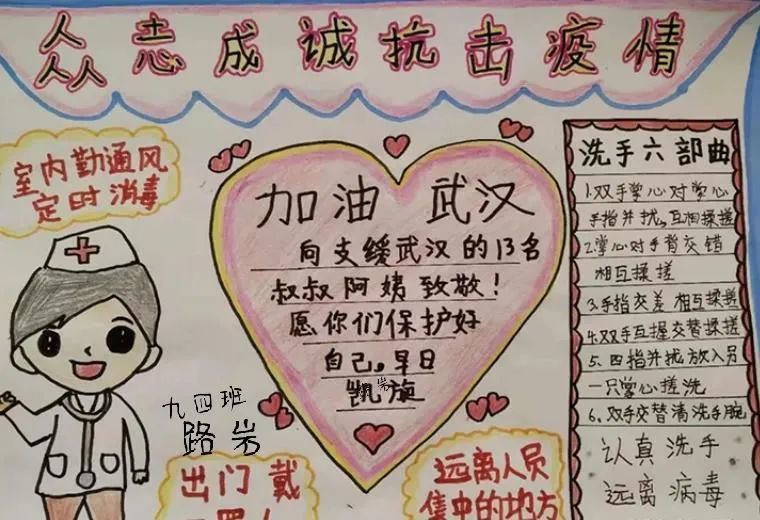 众志成诚抗击疫情
室内勤通风
定时消毒
加油 武汉
向支缓武汉的13名
叔叔阿姨致敬!
愿你们保护好
自己,早日
凯旋
九四班
路岩
出门戴
远离人员
集中的地方
洗手六部曲
1.双手掌心对掌心
手指并扰,互相揉搓
2.掌心对手背交错
相互揉搓
3.手指交差 相互揉搓
4.双手互握交替揉搓
5.四指并扰放入员
一只掌心搓洗
6.双手交替清洗手腕
认真洗手
远离病毒